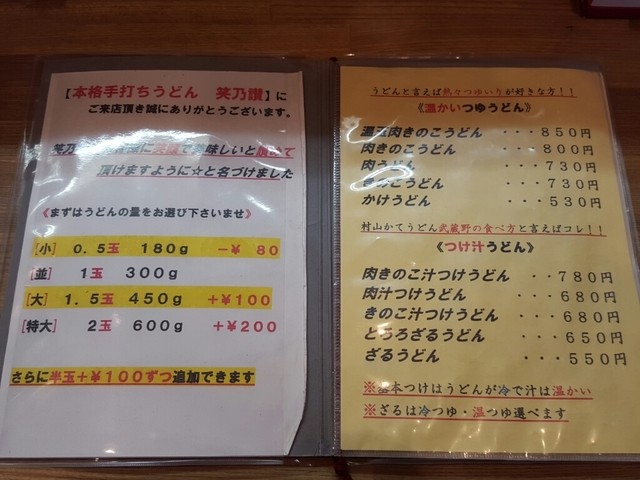 【本格手打ちうどん　笑乃讃】に
ご来店頂き誠にありがとうございます。
笑乃 に笑顔で美味しいと讃めて
頂けますように☆と名づけました
《まずはうどんの量をお選び下さいませ》
[小]　0.5玉　180g　－￥80
[並]　1玉　300g
[大]　1.5玉　450g　＋￥100
[特大]　2玉　600g　＋￥200
さらに半玉＋￥100ずつ追加できます
うどんと言えば熱々つゆいりが好きな方！！
《温かいつゆうどん》
温玉肉きのこうどん　・・・850円
肉きのこうどん　・・・800円
肉うどん　・・・730円
きのこうどん　・・・730円
かけうどん　・・・530円
村山かてうどん武蔵野の食べ方と言えばコレ！！
《つけ汁うどん》
肉きのこ汁つけうどん　・・780円
肉汁つけうどん　・・・680円
きのこ汁つけうどん　・・・680円
とろろざるうどん　・・・650円
ざるうどん　・・・550円
※基本つけはうどんが冷で汁は温かい
※ざるは冷つゆ・温つゆ選べます